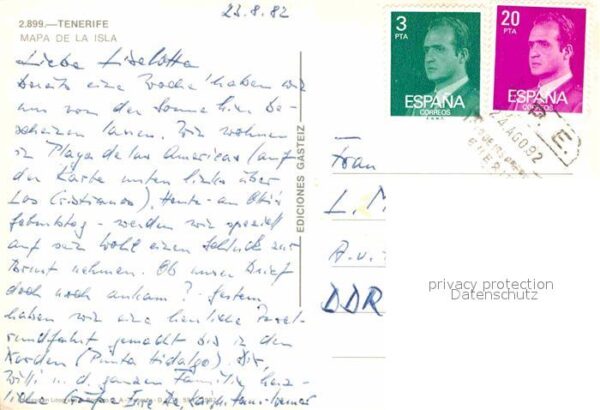 23.8.82
2.899.—TENERIFE
MAPA DE LA ISLA
Liebe Liselotte
bereits eine Woche haben wir
uns von der Sonne hier be-
scheinen lassen. Wir wohnen
in Playa de las Americas (auf
der Karte unten links über
Los Cristianos). Heute - an
Geburtstag - werden wir speziell
auf sein Wohl einen Schluck zur
Brust nehmen. Ob unser Brief
doch noch ankam? - Gestern
haben wir eine herrliche Insel-
rundfahrt gemacht bis in den
Norden (Punta Hidalgo). Dir,
Willi u. d. ganzen Familie herz-
liche Grüße
EDICIONES GASTEIZ
3
PTA
ESPAÑA
CORREOS
F.N.M.T.
20
PTA
ESPAÑA
CORREOS
24 AGO 92
Frau
L. M
A. v.
DDR
privacy protection
Datenschutz